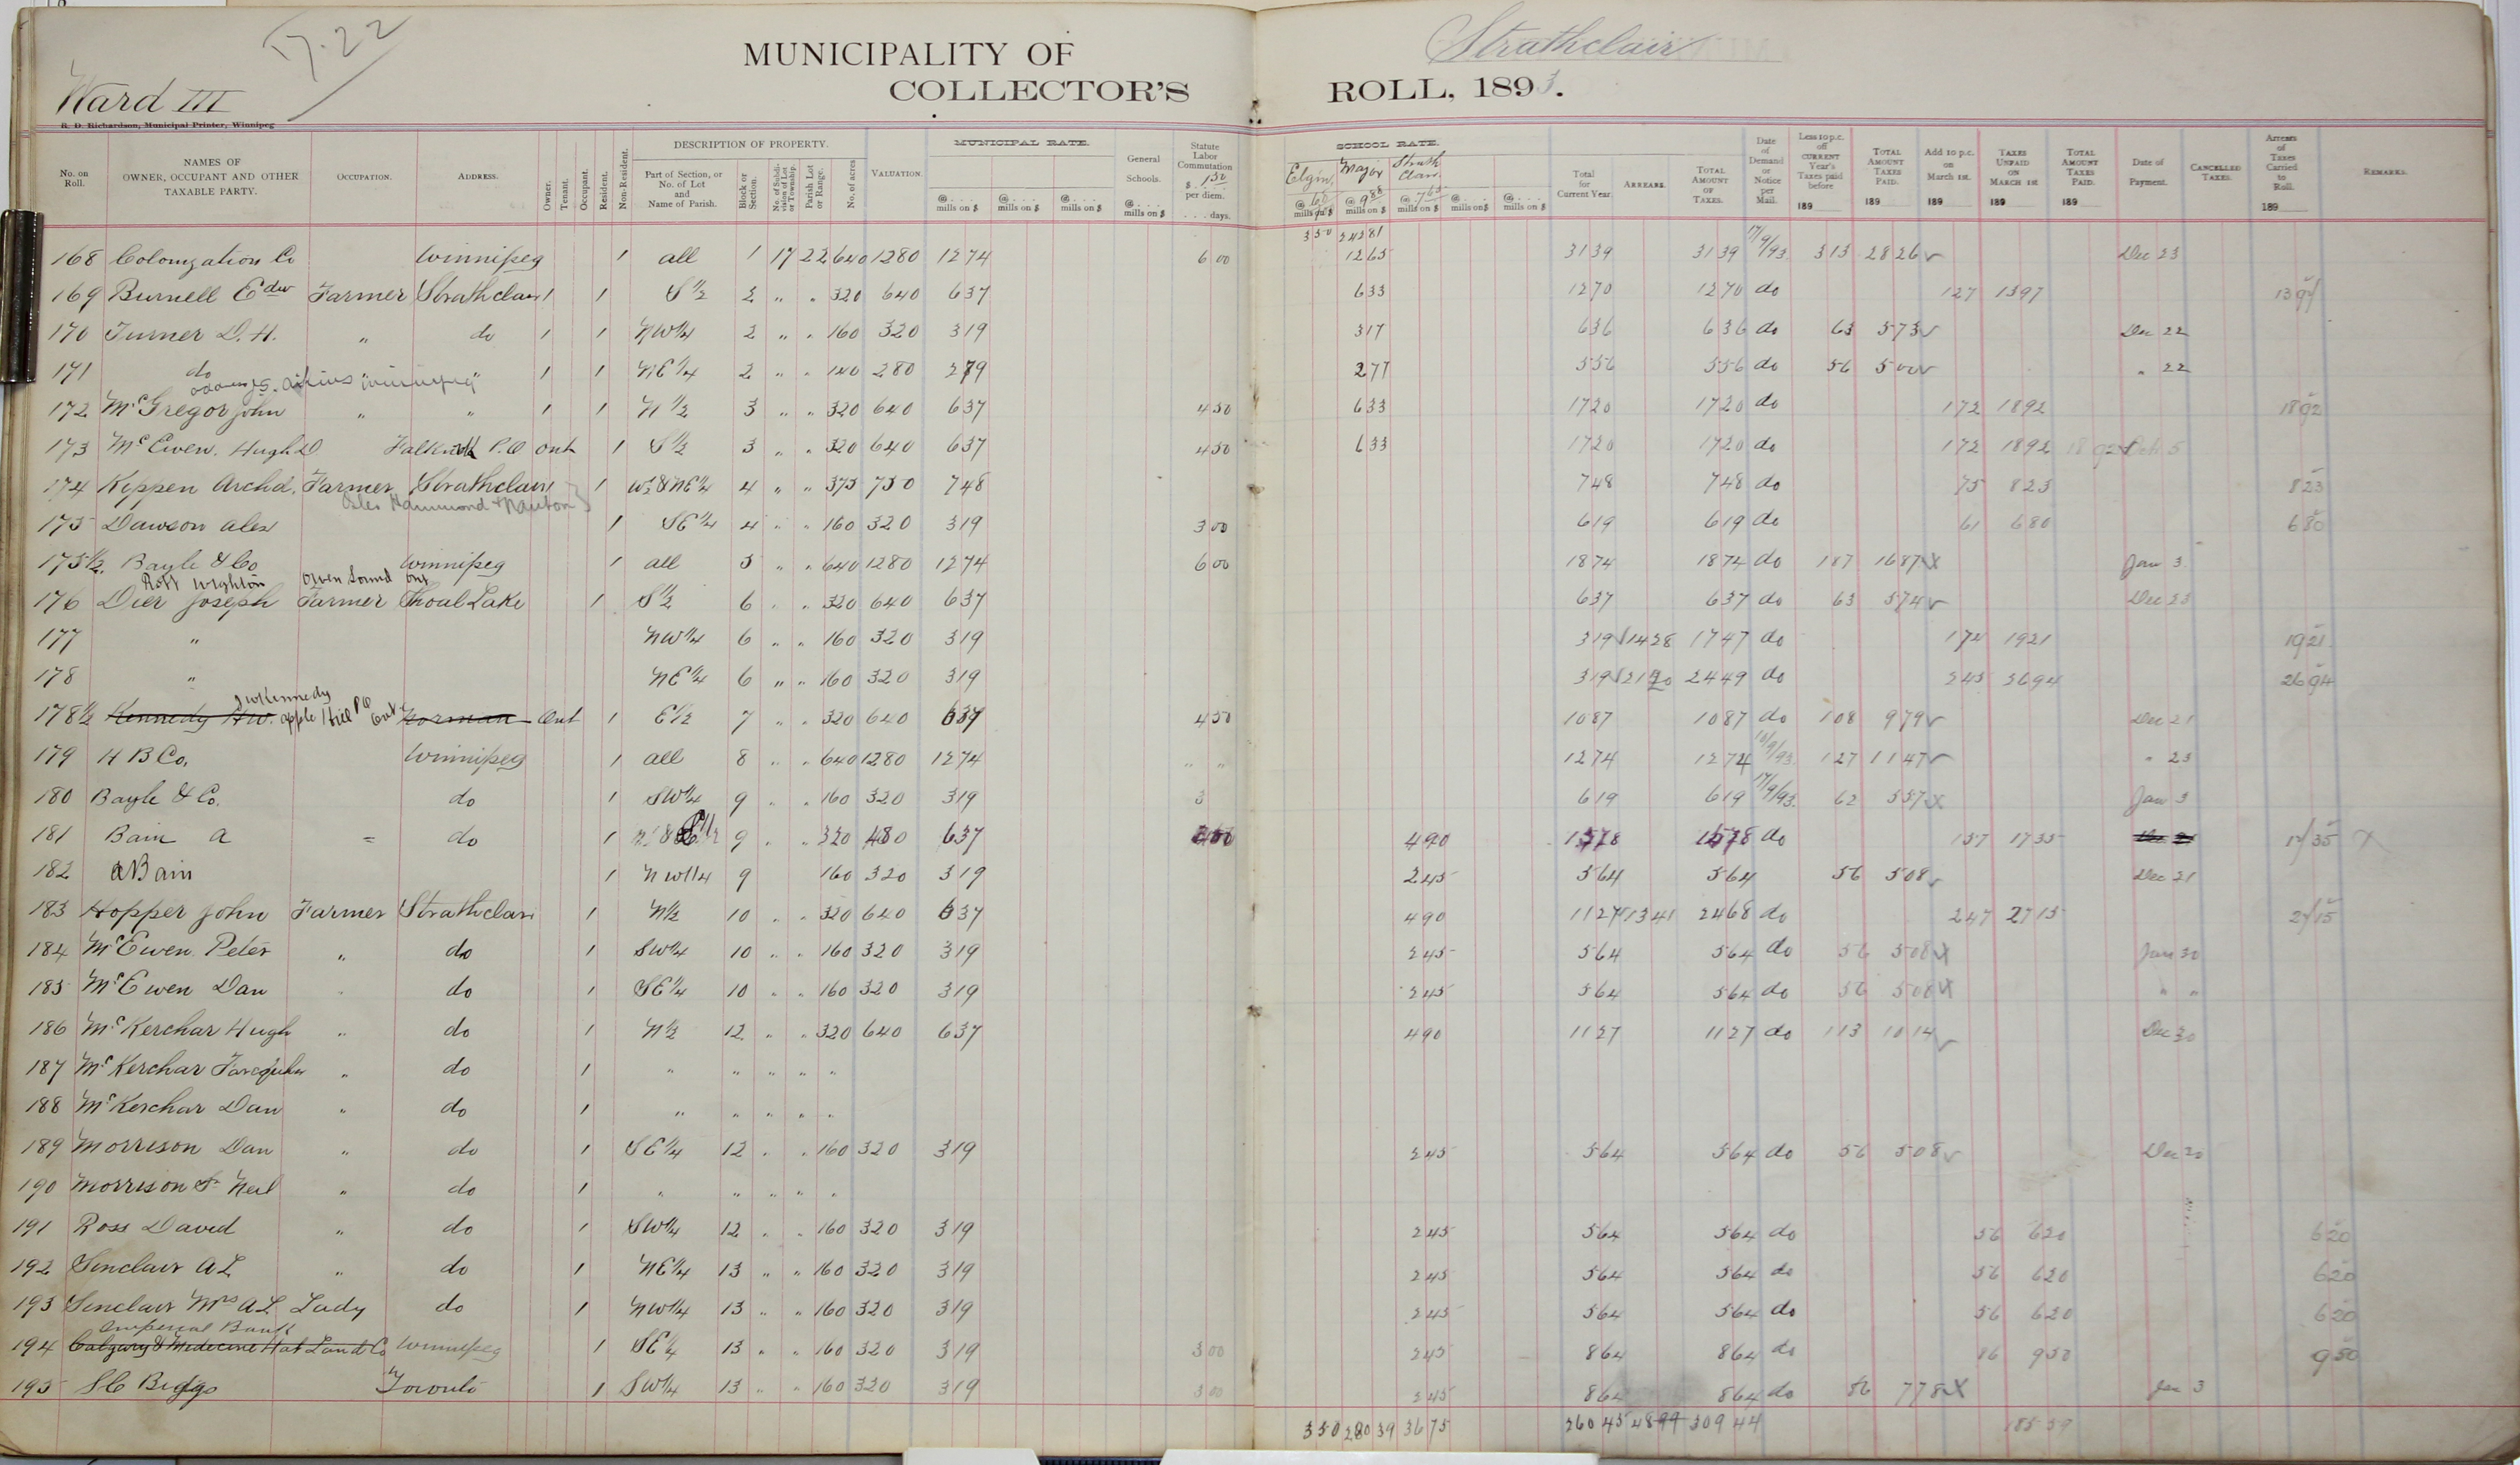 17.22
MUNICIPALITY OF Strathclair
Ward III COLLECTOR'S ROLL, 1893.
R. D. Richardson, Municipal Printer, Winnipeg
No. on Roll. NAMES OF OWNER, OCCUPANT AND OTHER TAXABLE PARTY. OCCUPATION. ADDRESS. Owner. Tenant. Occupant. Resident. Non-Resident. DESCRIPTION OF PROPERTY. Part of Section, or No. of Lot and Name of Parish. Block or Section. No. of Subdivision of Lot or Township. Parish Lot or Range. No. of acres VALUATION. MUNICIPAL RATE. @ . . . mills on $ @ . . . mills on $ @ . . . mills on $ General Schools. @ . . . mills on $ Statute Labor Commutation $ 1.50 per diem. . . . days. SCHOOL RATE. Elgin Major Strath Clair @ mills on $ @ 988 mills on $ @ 765 mills on $ @ . . . mills on $ @ . . . mills on $ Total for Current Year. ARREARS. TOTAL AMOUNT OF TAXES. Date of Demand or Notice per Mail. Less 10 p.c. off CURRENT Year's Taxes paid before 189 TOTAL AMOUNT TAXES PAID. 189 Add 10 p.c. on March 1st. 189 TAXES UNPAID ON MARCH 1st 189 TOTAL AMOUNT TAXES PAID. 189 Date of Payment. CANCELLED TAXES. Arrears of Taxes Carried to Roll. 189 REMARKS.
350 24281
168 Colonization Co Winnipeg 1 all 1 17 22 640 1280 1274 600 1265 3139 3139 17/9/93 313 2826 ✓ Dec 23
169 Burnell Edw Farmer Strathclair 1 1 S½ 2 " " 320 640 637 633 1270 1270 do 127 1397 1397
170 Turner D. H. " do 1 1 NW¼ 2 " " 160 320 319 317 636 636 do 63 573 ✓ Dec 22
171 do 1 1 NE¼ 2 " " 140 280 279 277 556 556 do 56 500 ✓ " 22
172 McGregor John " " 1 1 N½ 3 " " 320 640 637 450 633 1720 1720 do 172 1892 1892
173 McEwen. Hugh D P.O Ont 1 S½ 3 " " 320 640 637 450 633 1720 1720 do 172 1892 1892
174 Keppen Archd. Farmer Strathclair 1 1 W½ & NE¼ 4 " " 375 750 748 748 748 do 75 823 823
Osler Hammond & Nanton
175 Dawson Alex 1 SE¼ 4 " " 160 320 319 300 619 619 do 61 680 680
175½ Bayle & Co Winnipeg 1 all 5 " " 640 1280 1274 600 1874 1874 do 187 1687 X Jan 3
Robt Wighton Owen Sound Ont
176 Dier Joseph Farmer Shoal Lake 1 S½ 6 " " 320 640 637 637 637 do 63 574 ✓ Dec 23
177 " NW¼ 6 " " 160 320 319 319 1428 1747 do 174 1921 1921
178 " NE¼ 6 " " 160 320 319 319 2449 do 245 2694 2694
J W Kennedy
178½ Kennedy H W. Apple Hill PO Ont Norman Ont 1 E½ 7 " " 320 640 637 450 1087 1087 do 108 979 ✓ Dec 21
179 H B Co. Winnipeg 1 all 8 " " 640 1280 1274 " " 1274 1274 127 1147 ✓ " 23
180 Bayle & Co. do 1 SW¼ 9 " " 160 320 319 3 619 619 17/9/93 62 557 X Jan 3
181 Bain A = do 1 9 " " 320 480 637 490 1578 1578 do 157 1735 1735 X
182 A Bain 1 NW¼ 9 160 320 319 245 564 564 56 508 ✓ Dec 21
183 Hopper John Farmer Strathclair 1 N½ 10 " " 320 640 637 490 1127 1341 2468 do 247 2715 2715
184 McEwen Peter " do 1 SW¼ 10 " " 160 320 319 245 564 564 do 56 508 X Jan 30
185 McEwen Dan " do 1 SE¼ 10 " " 160 320 319 245 564 564 do 56 508 X " "
186 McKerchar Hugh " do 1 N½ 12 " " 320 640 637 490 1127 1127 do 113 1014 ✓ Dec 30
187 McKerchar Farquhar " do 1 " " " "
188 McKerchar Dan " do 1 " " " " "
189 Morrison Dan " do 1 SE¼ 12 " " 160 320 319 245 564 564 do 56 508 ✓ Dec 20
190 Morrison Neil " do 1 " " " " "
191 Ross David " do 1 SW¼ 12 " " 160 320 319 245 564 564 do 56 620 620
192 Sinclair A L " do 1 NE¼ 13 " " 160 320 319 245 564 564 do 56 620 620
193 Sinclair Mrs A L Lady do 1 NW¼ 13 " " 160 320 319 245 564 564 do 56 620 620
Imperial Bank
194 Calgary & Medicine Hat Land Co Winnipeg 1 SE¼ 13 " " 160 320 319 300 245 864 864 do 86 950 950
195 S C Biggs Toronto 1 SW¼ 13 " " 160 320 319 300 245 864 864 do 86 778 X Jan 3
350 28039 3675 26045 4899 30944 18559